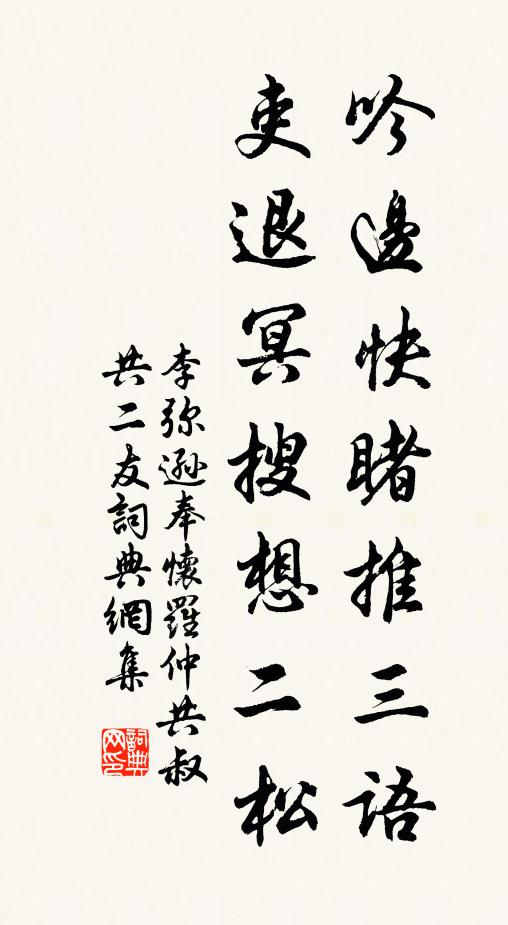 吟邊快睹推三語
吏退冥搜想二松
李弥遜奉懷羅仲共叔
共二友詞典網集
詞典网印